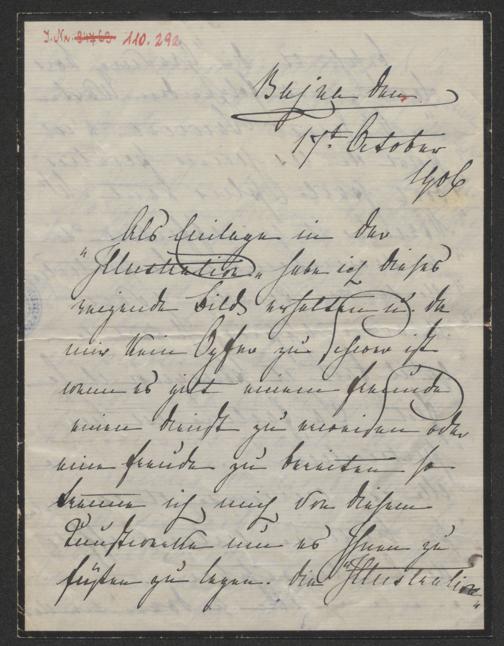 J. Nr. 110.292
Bajna den
17t October
1906
Als Beilage in der
"Illustration" habe ich dieses
reizende Bild erhalten u da
mir kein Opfer zu schwer ist
wenn es gilt einem Freunde
einen Dienst zu erweisen oder
eine Freude zu bereiten so
trenne ich mich von diesem
Kunstwerke um es Ihnen zu
Füßen zu legen. Die "Illustration"